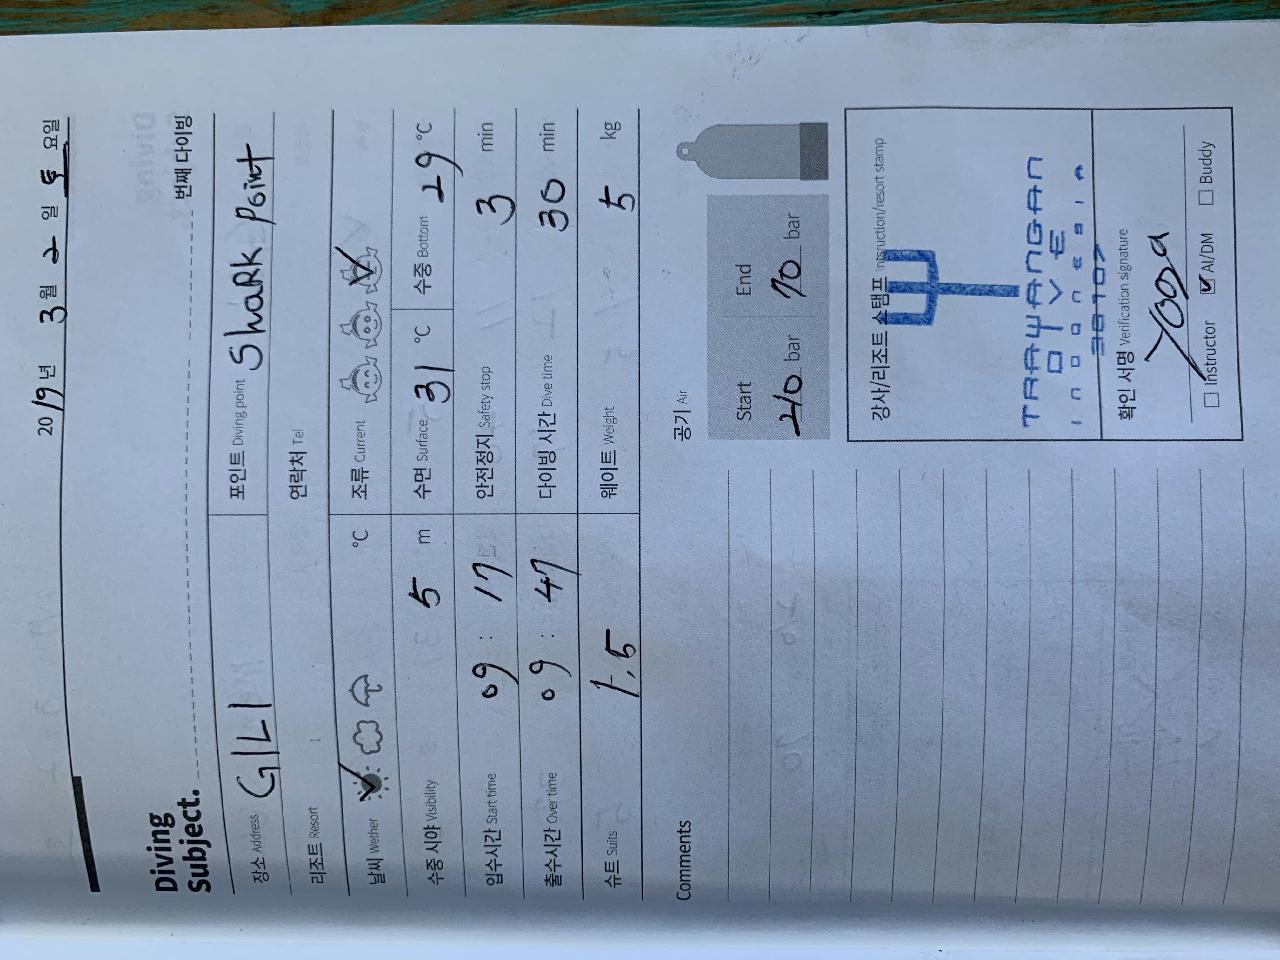 2019년 3월 2일 토요일
Diving
Subject.
번째 다이빙
장소 Address GILI
포인트 Diving point Shark Point
리조트 Resort
연락처 Tel
날씨 Wether °C
조류 Current
수중 시야 Visibility 5 m
수면 Surface 31 °C
수중 Bottom 29 °C
입수시간 Start time 09 : 17
안전정지 Safety stop 3 min
출수시간 Over time 09 : 47
다이빙 시간 Dive time 30 min
슈트 Suits 1.5
웨이트 Weight 5 kg
Comments
공기 Air
Start End
210 bar 70 bar
강사/리조트 스탬프 Instruction/resort stamp
TRAWANGAN
DIVE
INDONESIA
확인 서명 Verification signature
Instructor AI/DM Buddy